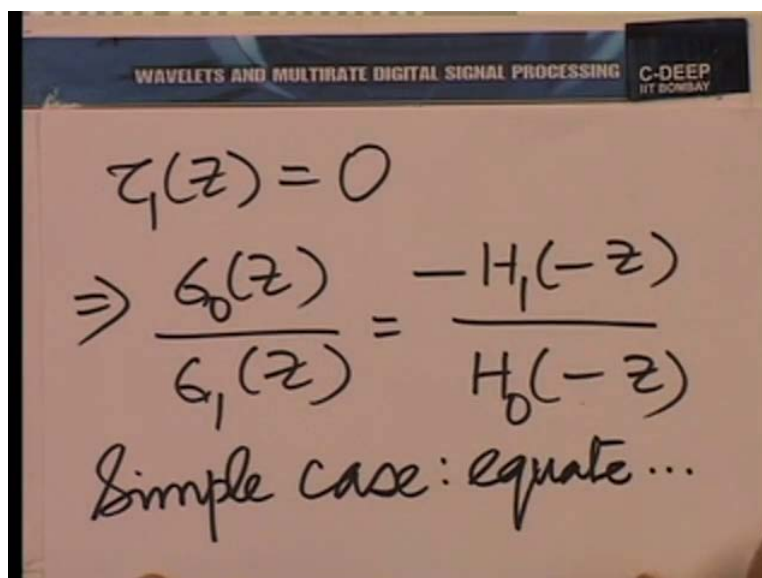 WAVELETS AND MULTIRATE DIGITAL SIGNAL PROCESSING
C-DEEP
IIT BOMBAY
τ₁(Z) = 0
⇒ G₀(Z) / G₁(Z) = -H₁(-Z) / H₀(-Z)
Simple case: equate...